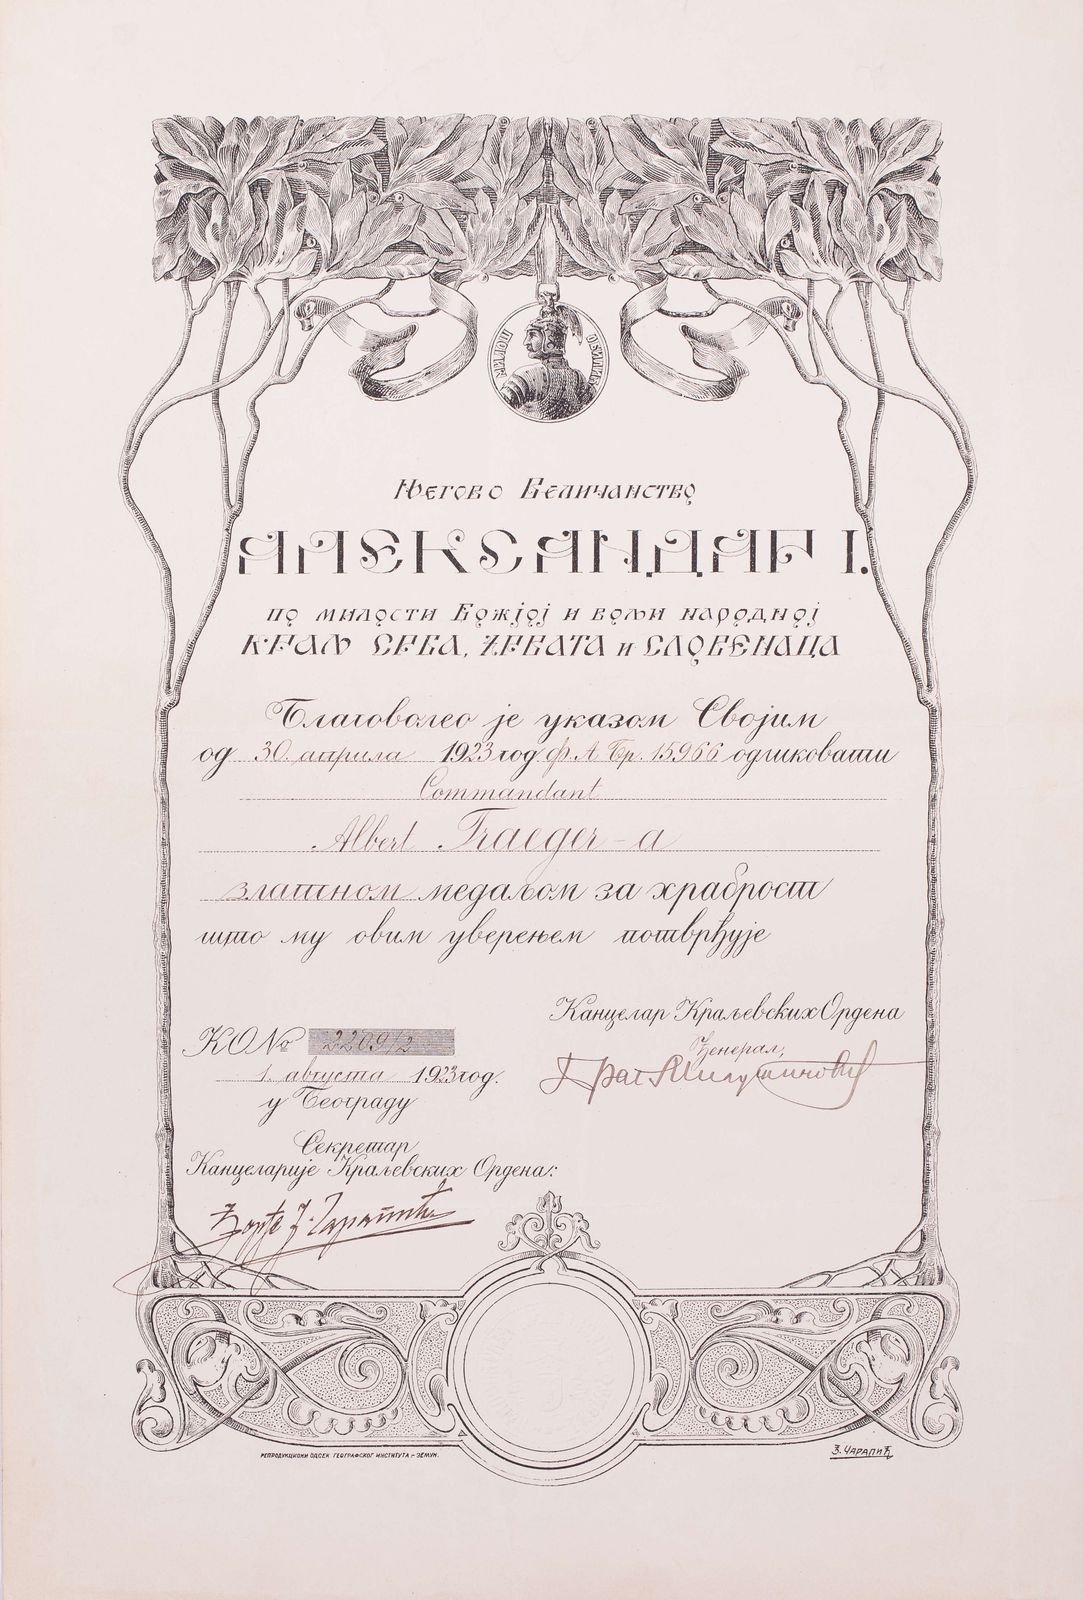 МИЛОШ ОБИЛИЋ
Његово Величанство
АЛЕКСАНДАР I.
по милости Божјој и вољи народној
КРАЉ СРБА, ХРВАТА и СЛОВЕНАЦА
Благоволео је указом Својим
од 30. априла 1923 год Ф. А. Бр. 15966 одликовати
Commandant
Albert Traeger-а
златном медаљом за храброст
што му овим уверењем потврђује
Канцелар Краљевских Ордена
КО № 2209/2
Ђенерал,
1. августа 1923 год.
у Београду
Секретар
Канцеларије Краљевских Ордена:
РЕПРОДУКЦИОНИ ОДСЕК ГЕОГРАФСКОГ ИНСТИТУТА - ЗЕМУН.
З. ЧАРАПИЋ